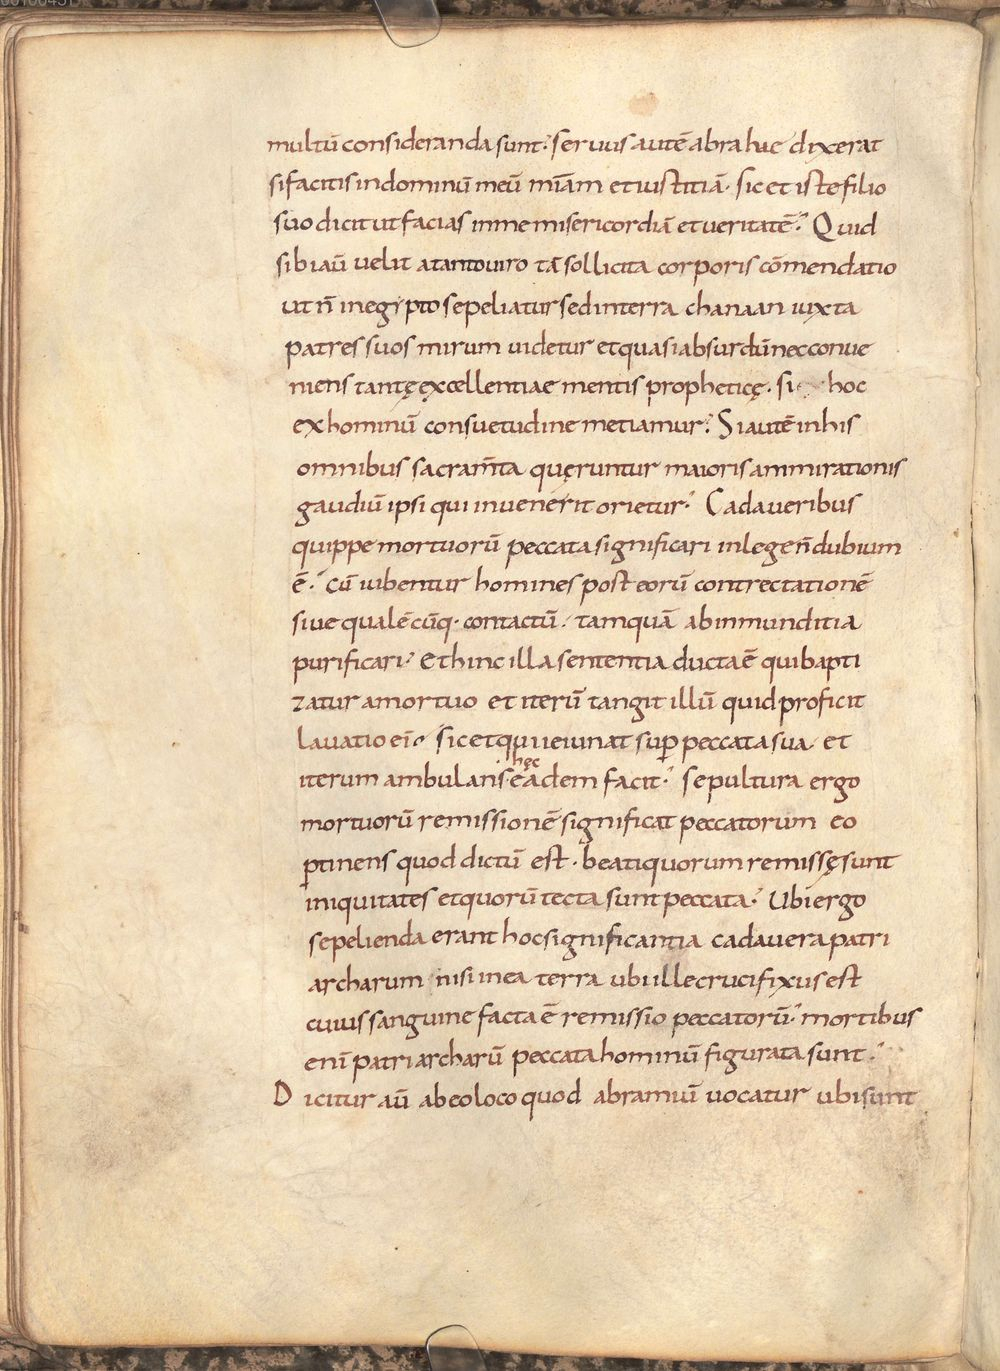 multū consideranda sunt. seruus autē abrahae dixerat
si facitis in dominū meū mīam et iustitiā. sic et iste filio
suo dicit ut facias in me misericordiā et ueritatē. Quid
sibi aū uelit a tanto uiro tā sollicita corporis cōmendatio
ut ñ in egypto sepeliatur sed in terra chanaan iuxta
patres suos mirum uidetur et quasi absurdū nec conue
niens tantę excellentiae mentis propheticę. si hoc
ex hominū consuetudine metiamur. Si autē in his
omnibus sacram̄ta quęruntur maioris ammirationis
gaudiū ipsi qui inuenerit orietur. Cadaueribus
quippe mortuorū peccata significari in lege ñ dubium
ē. cū iubentur homines post eorū contrectationē
siue qualēcūq. contactū. tamquā ab inmunditia
purificari. Et hinc illa sententia ducta ē qui bapti
zatur a mortuo et iterū tangit illū quid proficit
lauatio ei. Sic et qui ieiunat sup peccata sua et
iterum ambulans hęc eadem facit. sepultura ergo
mortuorū remissionē significat peccatorum eo
ptinens quod dictū est. beati quorum remissę sunt
iniquitates et quorū tecta sunt peccata. Ubi ergo
sepelienda erant hoc significantia cadauera patri
archarum nisi in ea terra ubi ille crucifixus est
cuius sanguine facta ē remissio peccatorū. mortibus
enī patriarcharū peccata hominū figurata sunt.
Dicitur aū ab eo loco quod abramiū uocatur ubi sunt